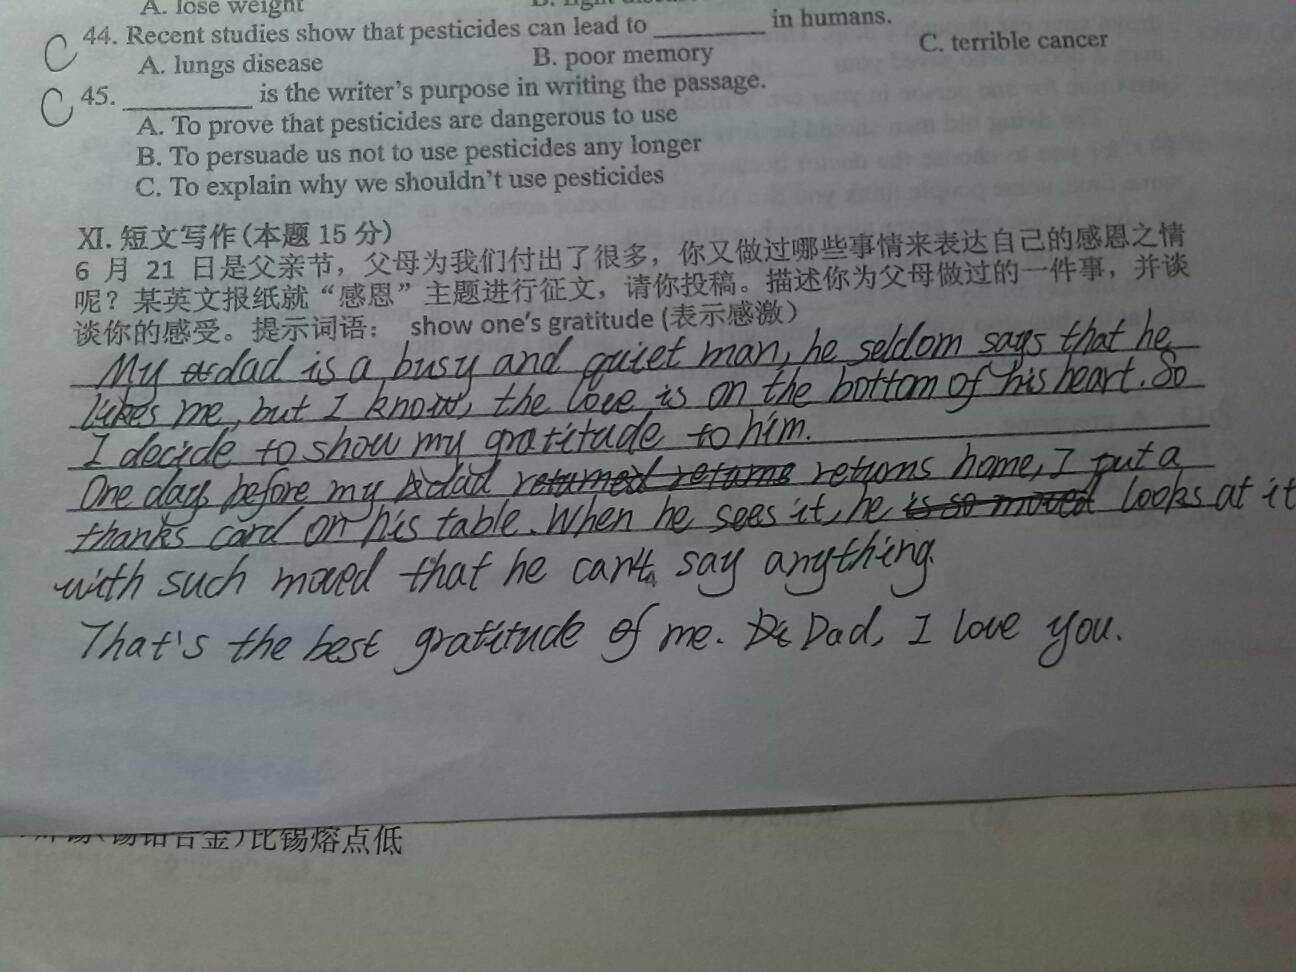 A. lose weight
C 44. Recent studies show that pesticides can lead to __________ in humans.
A. lungs disease B. poor memory C. terrible cancer
C 45. __________ is the writer's purpose in writing the passage.
A. To prove that pesticides are dangerous to use
B. To persuade us not to use pesticides any longer
C. To explain why we shouldn't use pesticides
XI. 短文写作(本题 15 分)
6 月 21 日是父亲节，父母为我们付出了很多，你又做过哪些事情来表达自己的感恩之情
呢？某英文报纸就“感恩”主题进行征文，请你投稿。描述你为父母做过的一件事，并谈
谈你的感受。提示词语： show one's gratitude (表示感激）
My dad is a busy and quiet man, he seldom says that he
likes me, but I know, the love is on the bottom of his heart. So
I decide to show my gratitude to him.
One day before my dad returned returns returns home, I put a
thanks card on his table. When he sees it, he is so moved looks at it
with such moved that he can't say anything.
That's the best gratitude of me. Dad, I love you.
比锡熔点低